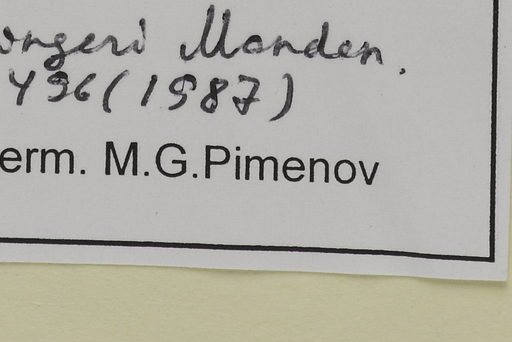 ongeri Manden.
496 (1987)
erm. M.G.Pimenov